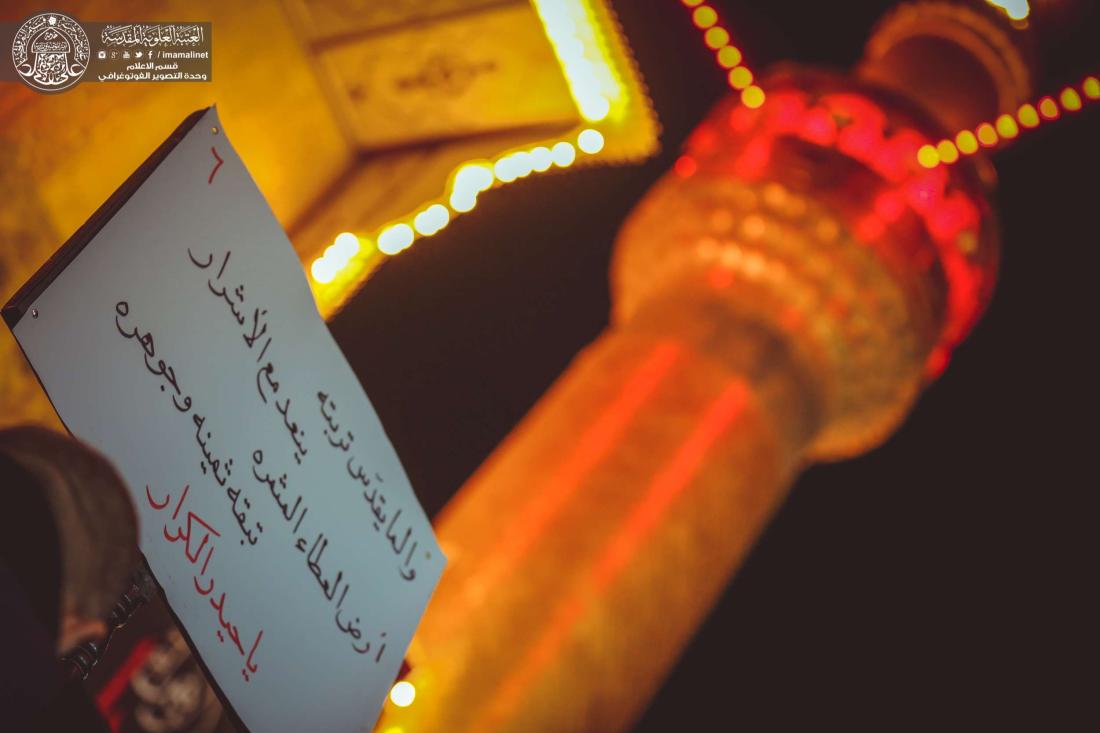 العتبة العلوية المقدسة
/ imamalinet
قسم الاعلام
وحدة التصوير الفوتوغرافي
٦
والما يقدّس تربته
ينعد مع الأشرار
أرض العطاء المثمره
تبقه ثمينه وجوهره
يا حيدر الكرار